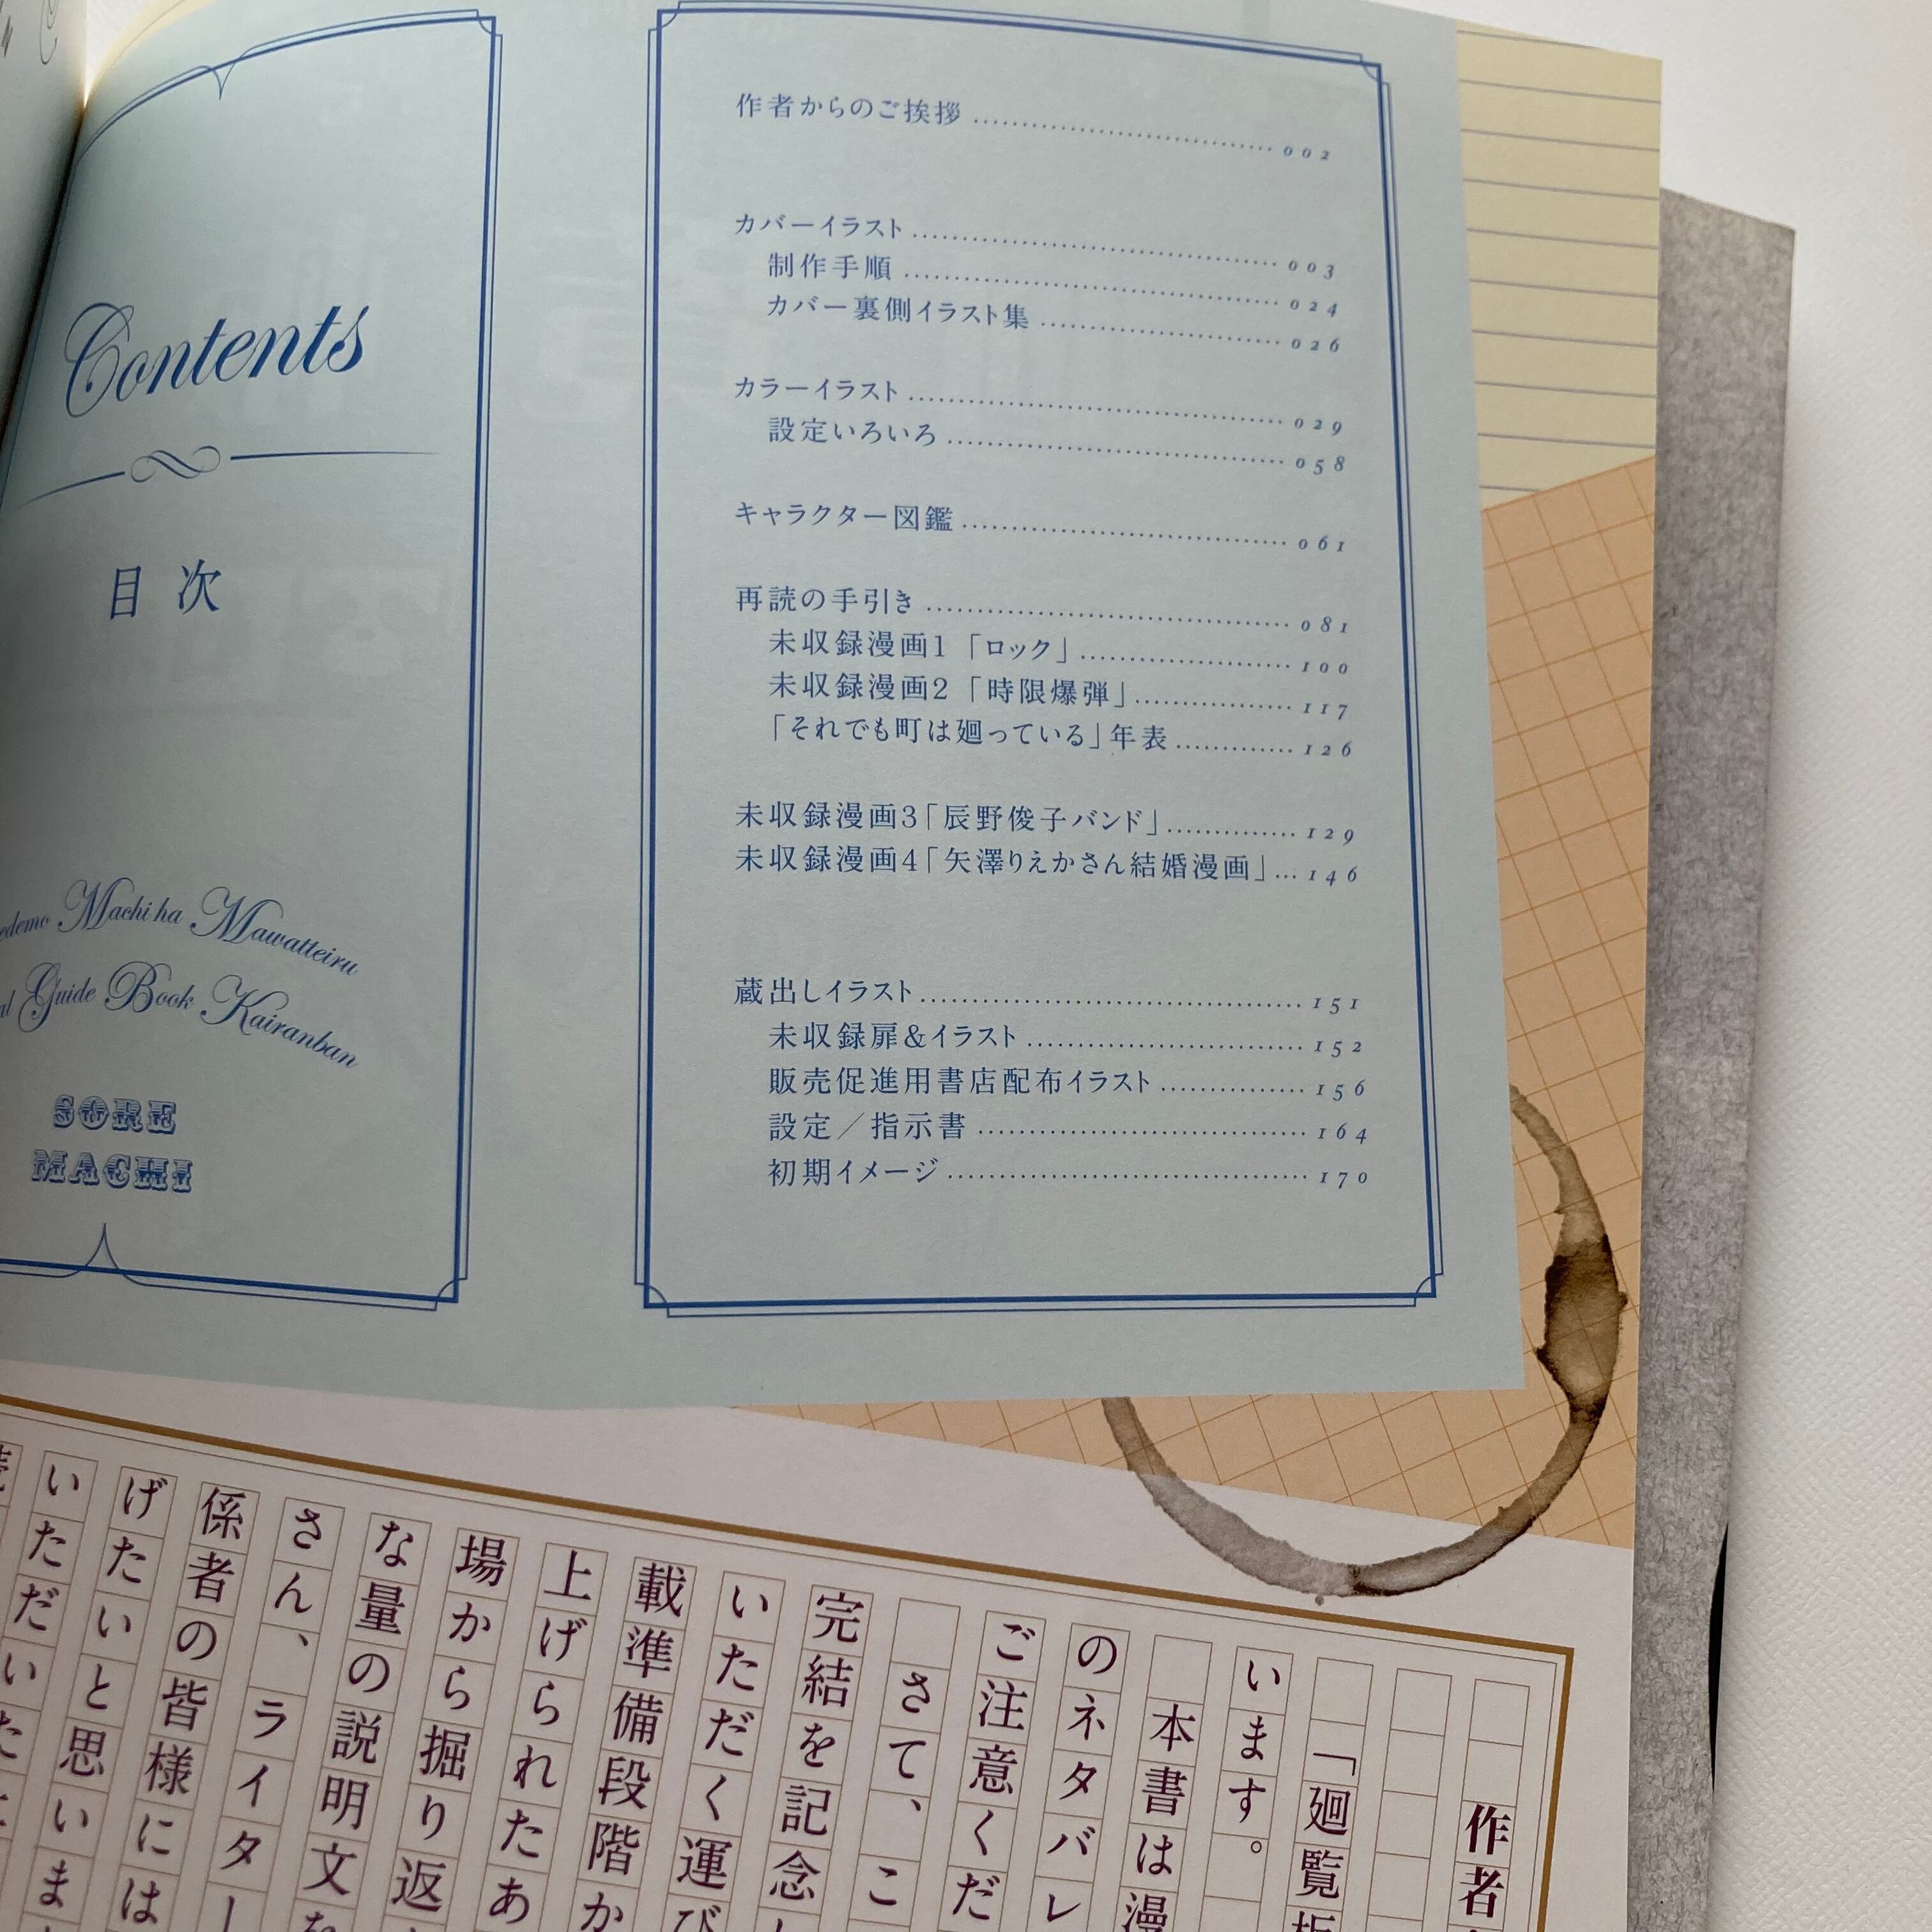 Contents
目次
Machi ha Mawatteiru
Guide Book Kairanban
SORE
MACHI
作者からのご挨拶 …… 002
カバーイラスト …… 003
制作手順 …… 024
カバー裏側イラスト集 …… 026
カラーイラスト …… 029
設定いろいろ …… 058
キャラクター図鑑 …… 061
再読の手引き …… 081
未収録漫画1「ロック」…… 100
未収録漫画2「時限爆弾」…… 117
「それでも町は廻っている」年表 …… 126
未収録漫画3「辰野俊子バンド」…… 129
未収録漫画4「矢澤りえかさん結婚漫画」… 146
蔵出しイラスト …… 151
未収録扉&イラスト …… 152
販売促進用書店配布イラスト …… 156
設定／指示書 …… 164
初期イメージ …… 170
作者
「廻覧板
います。
本書は漫
のネタバレ
ご注意くだ
さて、こ
完結を記念し
いただく運び
載準備段階か
上げられたあ
場から掘り返
な量の説明文を
さん、ライター
係者の皆様には
げたいと思いま
いただいた